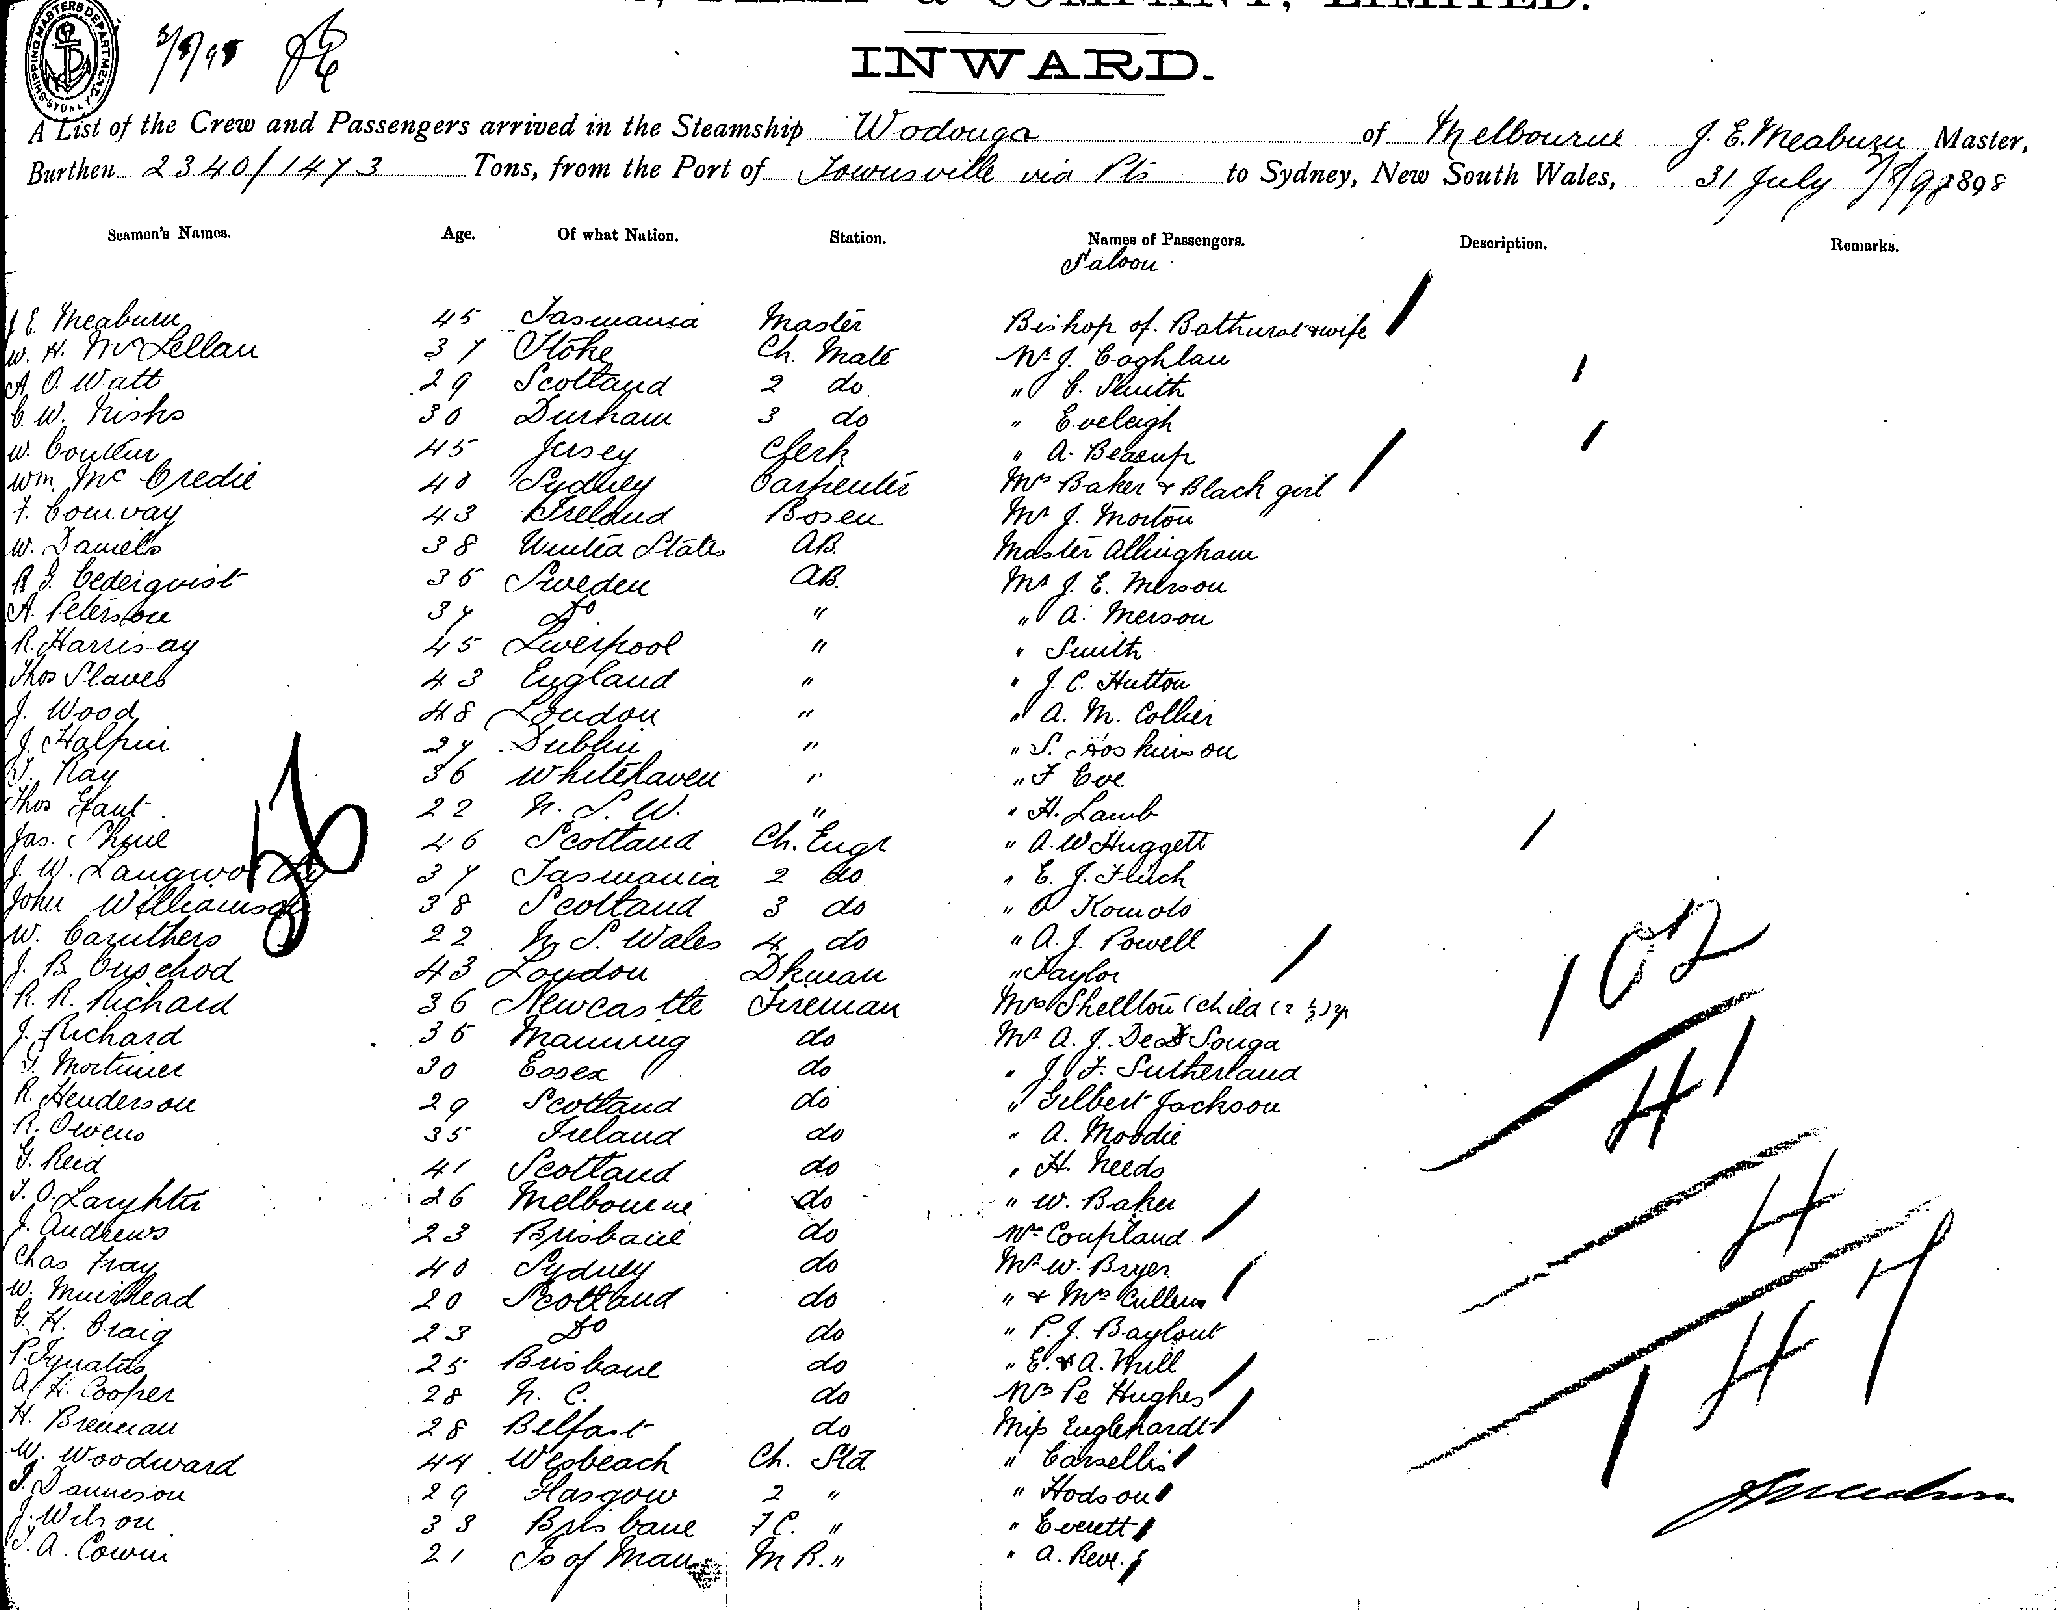 & COMPANY, LIMITED.
SHIPPING MASTERS DEPARTMENT, SYDNEY
INWARD.
A List of the Crew and Passengers arrived in the Steamship Wodonga of Melbourne J. E. Meaburn Master,
Burthen 2340/1473 Tons, from the Port of Townsville via Pts to Sydney, New South Wales, 31 July 1898
Seamen's Names. Age. Of what Nation. Station. Names of Passengers. Description. Remarks.
Saloon
J E Meaburn 45 Tasmania Master Bishop of Bathurst & wife
W. H. McLellan 37 Stoke Ch. Mate Mr J. Coghlan
A O. Watt 29 Scotland 2 do " C. Smith
C. W. Nisks 30 Durham 3 do " Eveleigh
W. Coulten 45 Jersey Clerk " A.
Wm. McCredie 40 Sydney Carpenter Mrs Baker & Black girl
F. Conway 43 Ireland Bosen Mr J. Morton
W. Daniels 38 United States AB. Master Allingham
Cederqvist 36 Sweden AB. Mr J. E. Merson
A. Peterson 37 Do " " A. Merson
R. Harris-ay 45 Liverpool " " Smith
Thos Slaves 43 England " " J. C. Hutton
J. Wood 48 London " " A. M. Collier
J. Halpin 27 Dublin " " S. Hoskinson
Ray 36 Whitehaven " " F Eve
Thos Gaut 22 N. S. W. " " H. Lamb
Jas. 46 Scotland Ch. Engr " A. W Huggett
J. W. Langworthy 37 Tasmania 2 do " E. J. Flich
John Williamson 38 Scotland 3 do " Komoto
W. Caruthers 22 N. S. Wales 4 do " A. J. Powell
J. B. 43 London Dkman " Taylor
R. R. Richard 36 Newcastle Fireman Mrs Shellton (child (2 ½) yr
J. Richard 36 Manning do Mr A. J. De Souga
Mortimer 30 Essex do " J. F. Sutherland
R. Henderson 29 Scotland do " Gilbert Jackson
R. Owens 35 Ireland do " A. Moodie
G. Reid 41 Scotland do " H. Needs
T. O Laryhter 26 Melbourne do " W. Baker
J. Andrews 23 Brisbane do Coupland
Chas Fray 40 Sydney do Mr W. Bryer
W. Muirhead 20 Scotland do " & Mrs Cullem
G. H. Craig 23 Do do " P. J. Baylout
P. Ignatus 25 Brisbane do " E. & A. Mill
A H. Cooper 28 N. C. do Mrs Pe Hughes
H. Brennan 28 Belfast do Miss Englehardt
W. Woodward 44 Wesbeach Ch. Std " Carsellis
Dannison 29 Glasgow 2 " " Hodson
J. Wilson 33 Brisbane F C. " " Everett
A. Cowin 21 Is of Man M R. " " A. Reve.
56
102
41
4
147